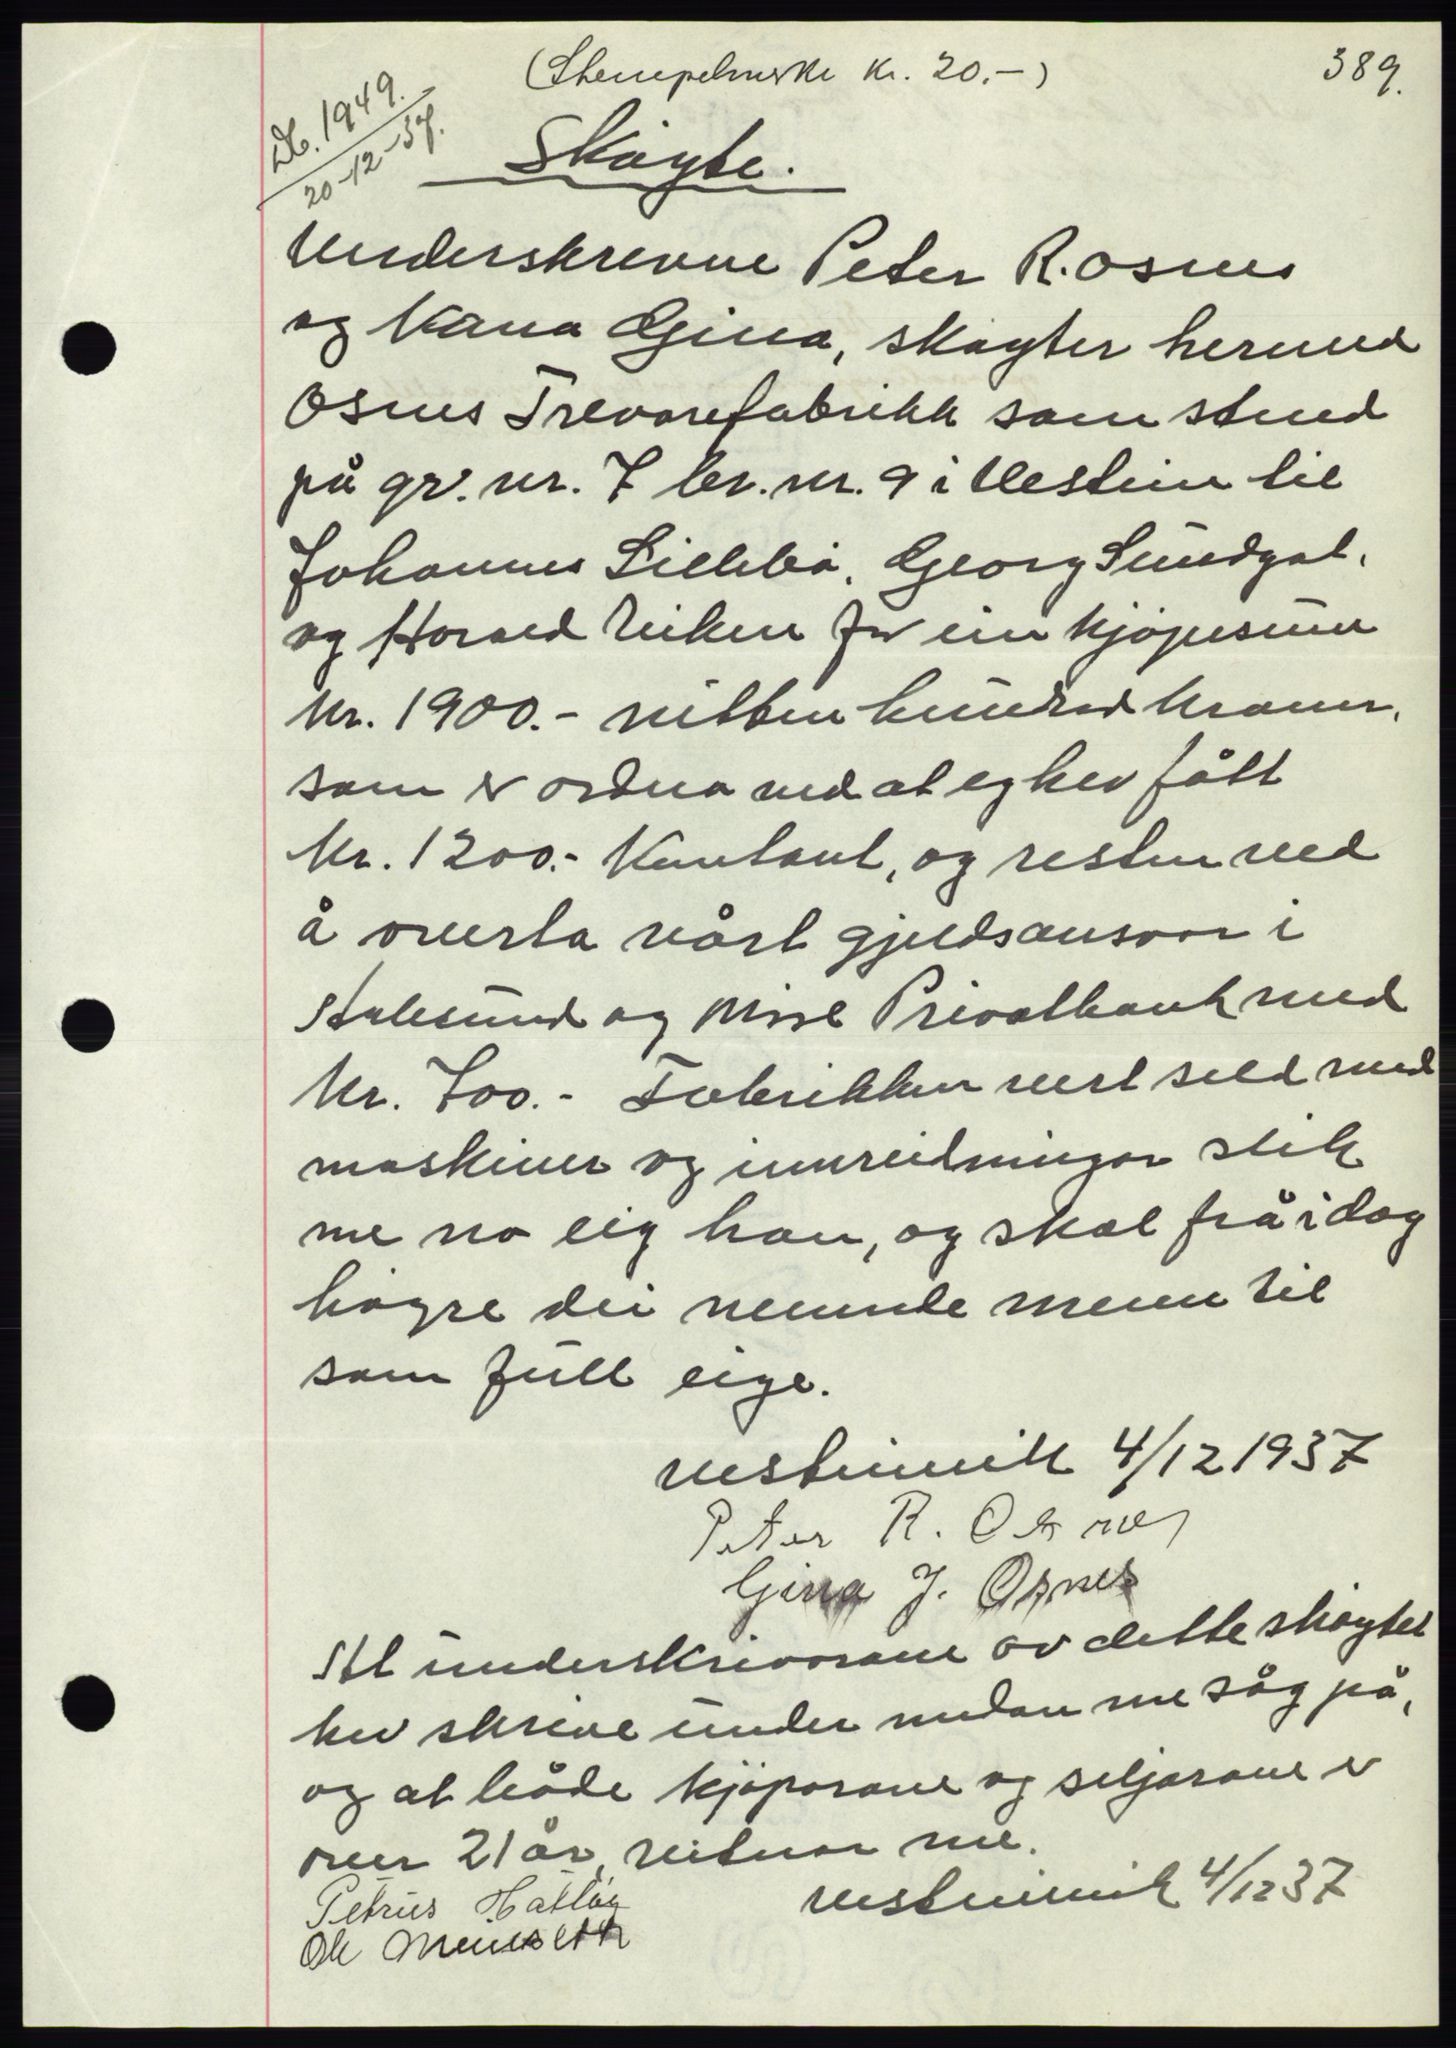 (Stempelmerke kr. 20.-)
389.
Db. 1949.
20-12-37.
Skøyte.
Underskrevne Peter R. Osnes
og kona Gina, skøyter hermed
Osnes Trevarefabrikk som stend
på gr. nr. 7 br. nr. 9 i Ulstein til
Johannes Lillebø, Georg Sundgot,
og Harald Viken for ein kjøpesum
kr. 1900.- nitten hundrad kroner,
som er ordna ved at eg hev fått
kr. 1200.- kontant, og resten ved
å overta vårt gjeldsansvar i
Ålesund og Møre Privatbank med
kr. 700.- Fabrikken vert seld med
maskiner og innreidningar slik
me no eig han, og skal frå idag
høyre dei nemnde menn til
som full eige.
Ulsteinvik 4/12 1937
Peter R. Osnes
Gina J. Osnes
At underskrivarane av dette skøytet
hev skrive under medan me såg på,
og at både kjøparane og seljarane er
over 21 år, vitnar me.
Ulsteinvik 4/12 37
Petrus Hatløy
Ole